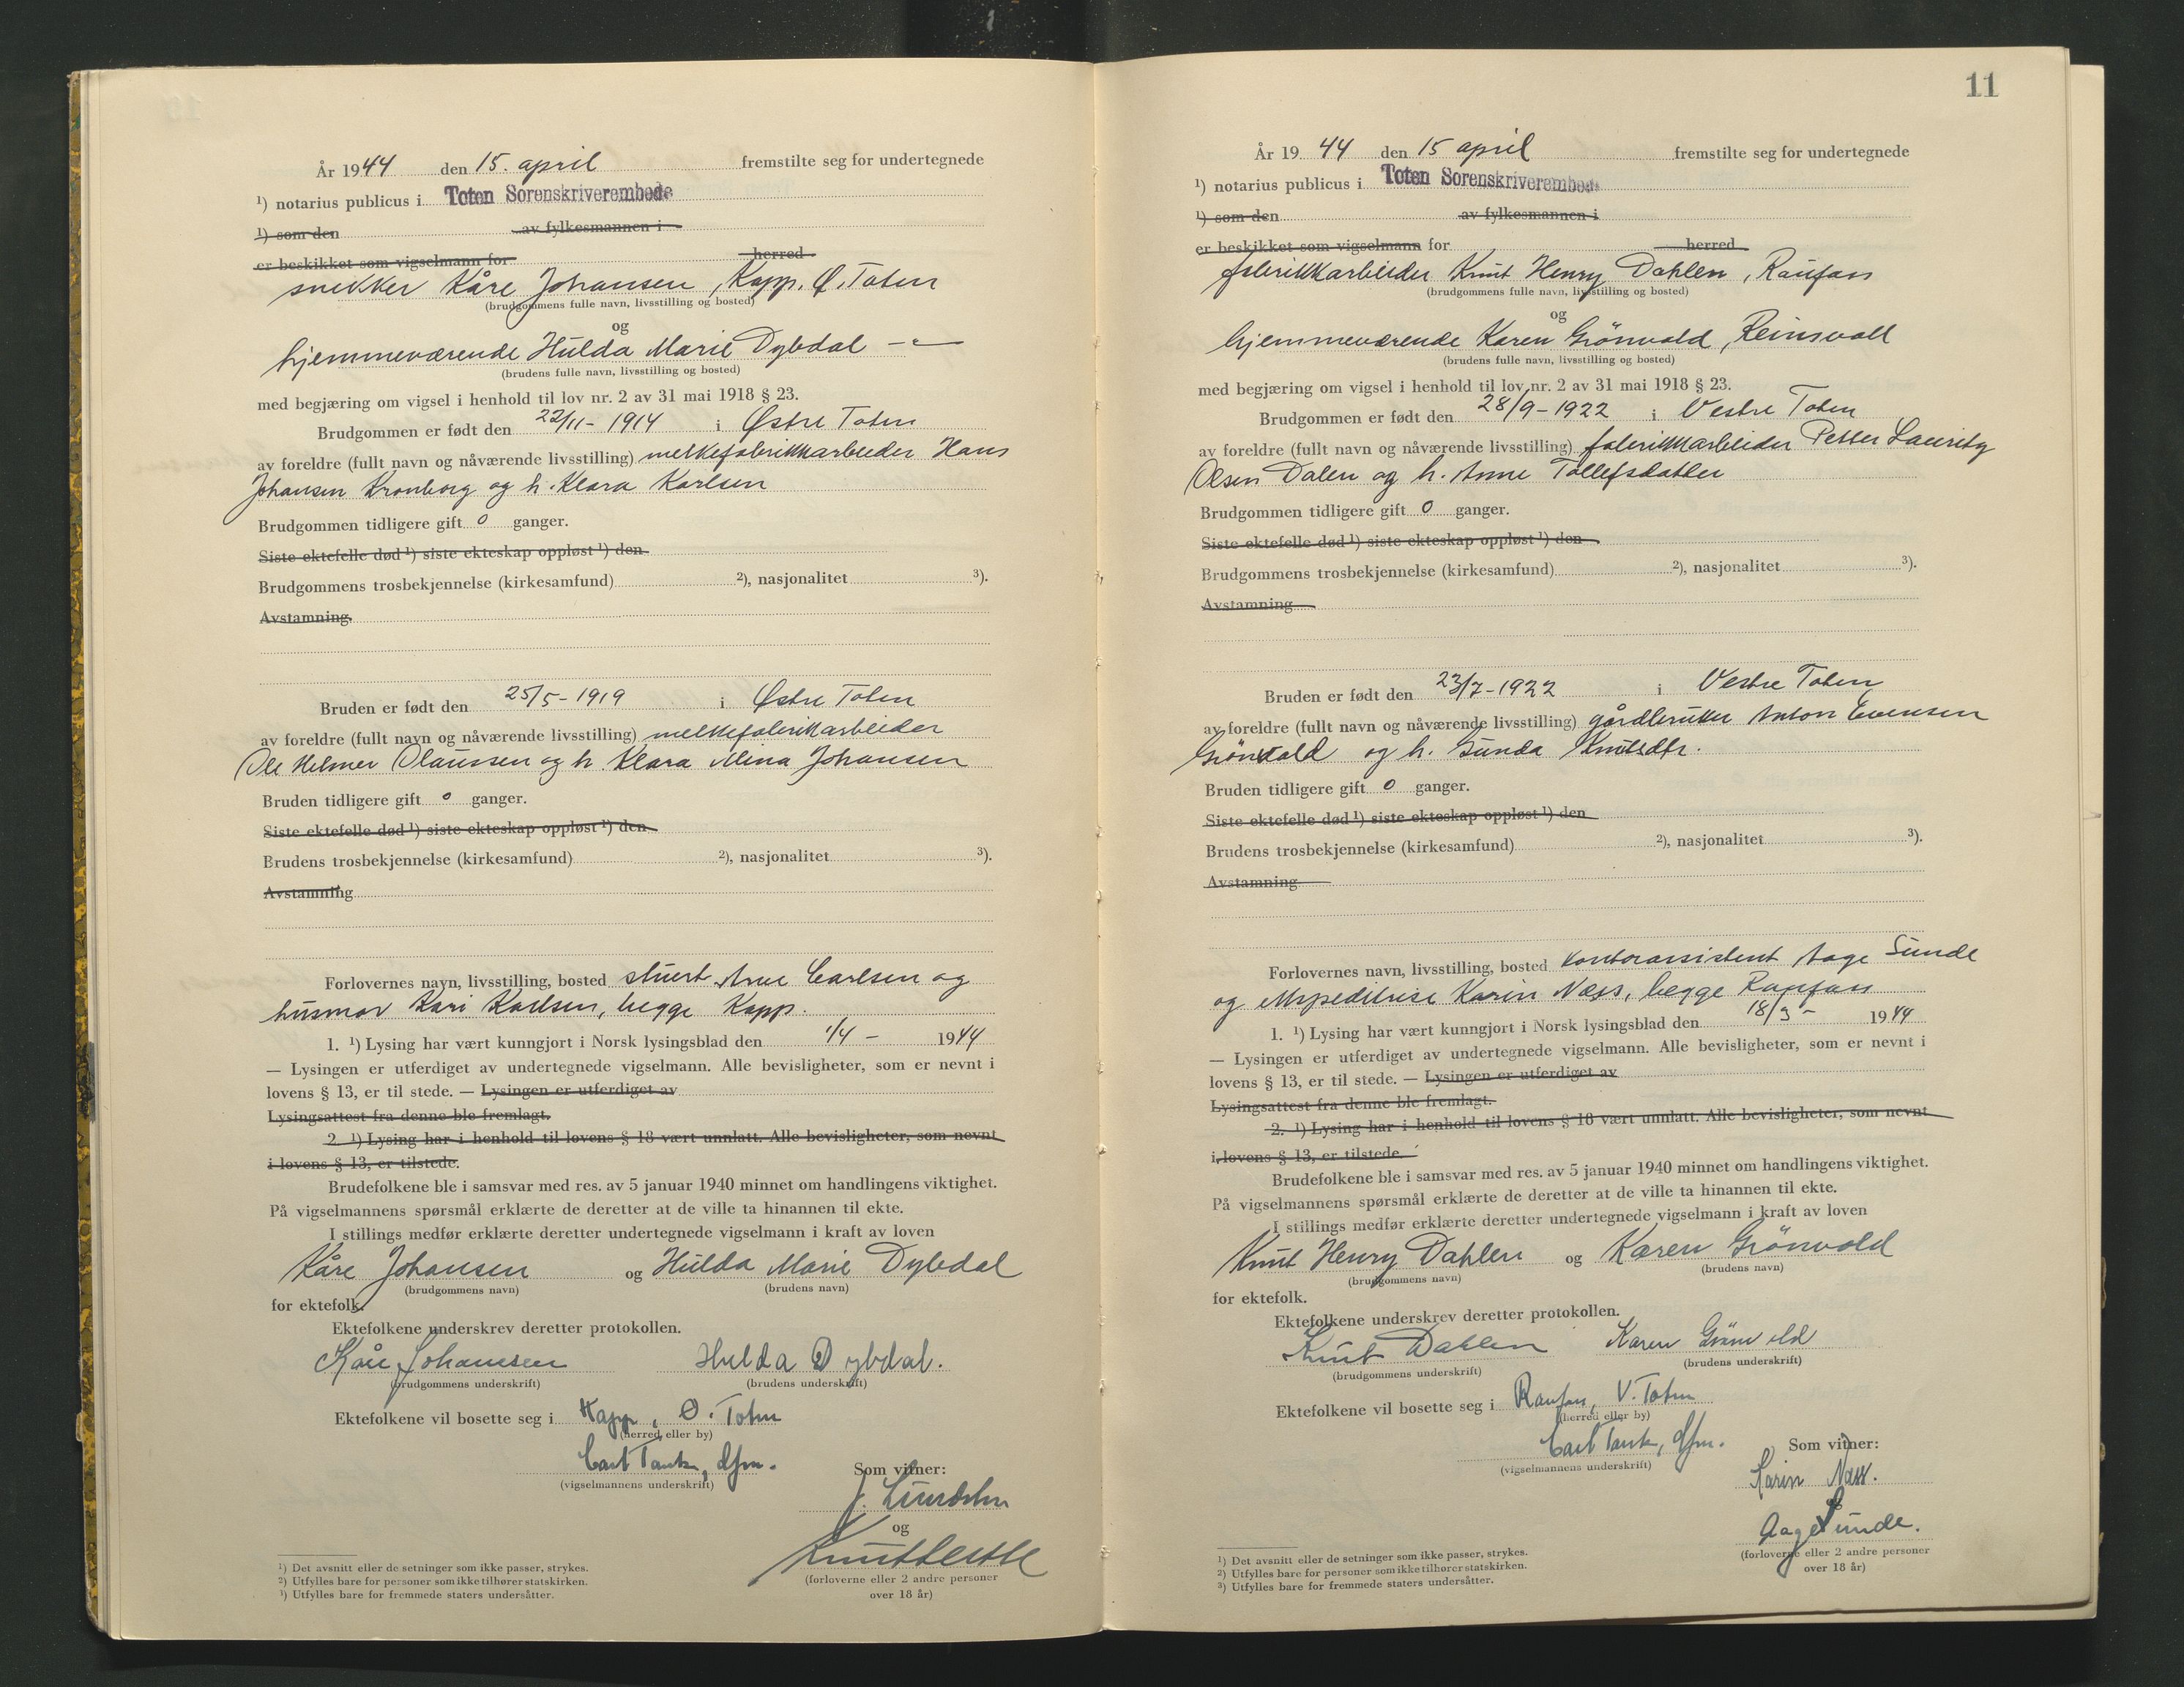 År 1944 den 15. april fremstilte seg for undertegnede
¹) notarius publicus i Toten Sorenskriverembede
¹) som den av fylkesmannen i
er beskikket som vigselmann for herred
snekker Kåre Johansen, Kapp. Ø. Toten
(brudgommens fulle navn, livsstilling og bosted)
og
hjemmeværende Hulda Marie Dybdal -"-
(brudens fulle navn, livsstilling og bosted)
med begjæring om vigsel i henhold til lov nr. 2 av 31 mai 1918 § 23.
Brudgommen er født den 22/11-1914 i Østre Toten
av foreldre (fullt navn og nåværende livsstilling) melkefabrikkarbeider Hans
Johansen Kronborg og h. Klara Karlsen
Brudgommen tidligere gift 0 ganger.
Siste ektefelle død ¹) siste ekteskap oppløst ¹) den
Brudgommens trosbekjennelse (kirkesamfund) ²), nasjonalitet ³).
Avstamning
Bruden er født den 25/5-1919 i Østre Toten
av foreldre (fullt navn og nåværende livsstilling) melkefabrikkarbeider
Ole Helmer Olaussen og h. Klara Mina Johansen
Bruden tidligere gift 0 ganger.
Siste ektefelle død ¹) siste ekteskap oppløst ¹) den
Brudens trosbekjennelse (kirkesamfund) ²), nasjonalitet ³).
Avstamning
Forlovernes navn, livsstilling, bosted stuert Arne Carlsen og
husmor Kari Karlsen, begge Kapp.
1. ¹) Lysing har vært kunngjort i Norsk lysingsblad den 1/4 - 1944
— Lysingen er utferdiget av undertegnede vigselmann. Alle bevisligheter, som er nevnt i
lovens § 13, er til stede. — Lysingen er utferdiget av
Lysingsattest fra denne ble fremlagt.
2. ¹) Lysing har i henhold til lovens § 18 vært unnlatt. Alle bevisligheter, som nevnt
i lovens § 13, er tilstede.
Brudefolkene ble i samsvar med res. av 5 januar 1940 minnet om handlingens viktighet.
På vigselmannens spørsmål erklærte de deretter at de ville ta hinannen til ekte.
I stillings medfør erklærte deretter undertegnede vigselmann i kraft av loven
Kåre Johansen og Hulda Marie Dybdal
(brudgommens navn) (brudens navn)
for ektefolk.
Ektefolkene underskrev deretter protokollen.
Kåre Johansen Hulda Dybdal.
(brudgommens underskrift) (brudens underskrift)
Ektefolkene vil bosette seg i Kapp, Ø. Toten
(herred eller by)
Carl Tank, dfm.
(vigselmannens underskrift)
Som vitner:
J.
og
Knut
(forloverne eller 2 andre personer
over 18 år)
¹) Det avsnitt eller de setninger som ikke passer, strykes.
²) Utfylles bare for personer som ikke tilhører statskirken.
³) Utfylles bare for fremmede staters undersåtter.
11
År 1944 den 15 april fremstilte seg for undertegnede
¹) notarius publicus i Toten Sorenskriverembede
¹) som den av fylkesmannen i
er beskikket som vigselmann for herred
fabrikkarbeider Knut Henry Dahlen, Raufoss
(brudgommens fulle navn, livsstilling og bosted)
og
hjemmeværende Karen Grönvold, Reinsvoll
(brudens fulle navn, livsstilling og bosted)
med begjæring om vigsel i henhold til lov nr. 2 av 31 mai 1918 § 23.
Brudgommen er født den 28/9-1922 i Vestre Toten
av foreldre (fullt navn og nåværende livsstilling) fabrikkarbeider Petter Lauritz
Olsen Dalen og h. Anne Tollefsdatter
Brudgommen tidligere gift 0 ganger.
Siste ektefelle død ¹) siste ekteskap oppløst ¹) den
Brudgommens trosbekjennelse (kirkesamfund) ²), nasjonalitet ³).
Avstamning
Bruden er født den 23/7-1922 i Vestre Toten
av foreldre (fullt navn og nåværende livsstilling) gårdbruker Anton Evensen
Grönvold og h. Gunda Knutsdtr.
Bruden tidligere gift 0 ganger.
Siste ektefelle død ¹) siste ekteskap oppløst ¹) den
Brudens trosbekjennelse (kirkesamfund) ²), nasjonalitet ³).
Avstamning
Forlovernes navn, livsstilling, bosted kontorassistent Aage Sunde
og ekspeditrise Karin Næss, begge Raufoss
1. ¹) Lysing har vært kunngjort i Norsk lysingsblad den 18/3 - 1944
— Lysingen er utferdiget av undertegnede vigselmann. Alle bevisligheter, som er nevnt i
lovens § 13, er til stede. — Lysingen er utferdiget av
Lysingsattest fra denne ble fremlagt.
2. ¹) Lysing har i henhold til lovens § 18 vært unnlatt. Alle bevisligheter, som nevnt
i lovens § 13, er tilstede.
Brudefolkene ble i samsvar med res. av 5 januar 1940 minnet om handlingens viktighet.
På vigselmannens spørsmål erklærte de deretter at de ville ta hinannen til ekte.
I stillings medfør erklærte deretter undertegnede vigselmann i kraft av loven
Knut Henry Dahlen og Karen Grönvold
(brudgommens navn) (brudens navn)
for ektefolk.
Ektefolkene underskrev deretter protokollen.
Knut Dahlen Karen Grönvold
(brudgommens underskrift) (brudens underskrift)
Ektefolkene vil bosette seg i Raufoss, V. Toten
(herred eller by)
Carl Tank, dfm.
(vigselmannens underskrift)
Som vitner:
Karin Næss.
Aage Sunde.
(forloverne eller 2 andre personer
over 18 år)
¹) Det avsnitt eller de setninger som ikke passer, strykes.
²) Utfylles bare for personer som ikke tilhører statskirken.
³) Utfylles bare for fremmede staters undersåtter.